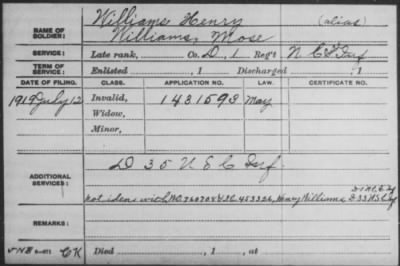 Williams, Henry
NAME OF SOLDIER: (alias)
Williams, Mose
SERVICE: Late rank, Co. D, 1 Reg't N. C. Inf
TERM OF SERVICE: Enlisted , 1 Discharged , 1
DATE OF FILING. CLASS. APPLICATION NO. LAW. CERTIFICATE NO.
1919 July 12 Invalid, 1431593 May
Widow,
Minor,
D 35 U S C Inf.
ADDITIONAL SERVICES:
not idens with Henry Williams
REMARKS:
CK Died , 1 , at